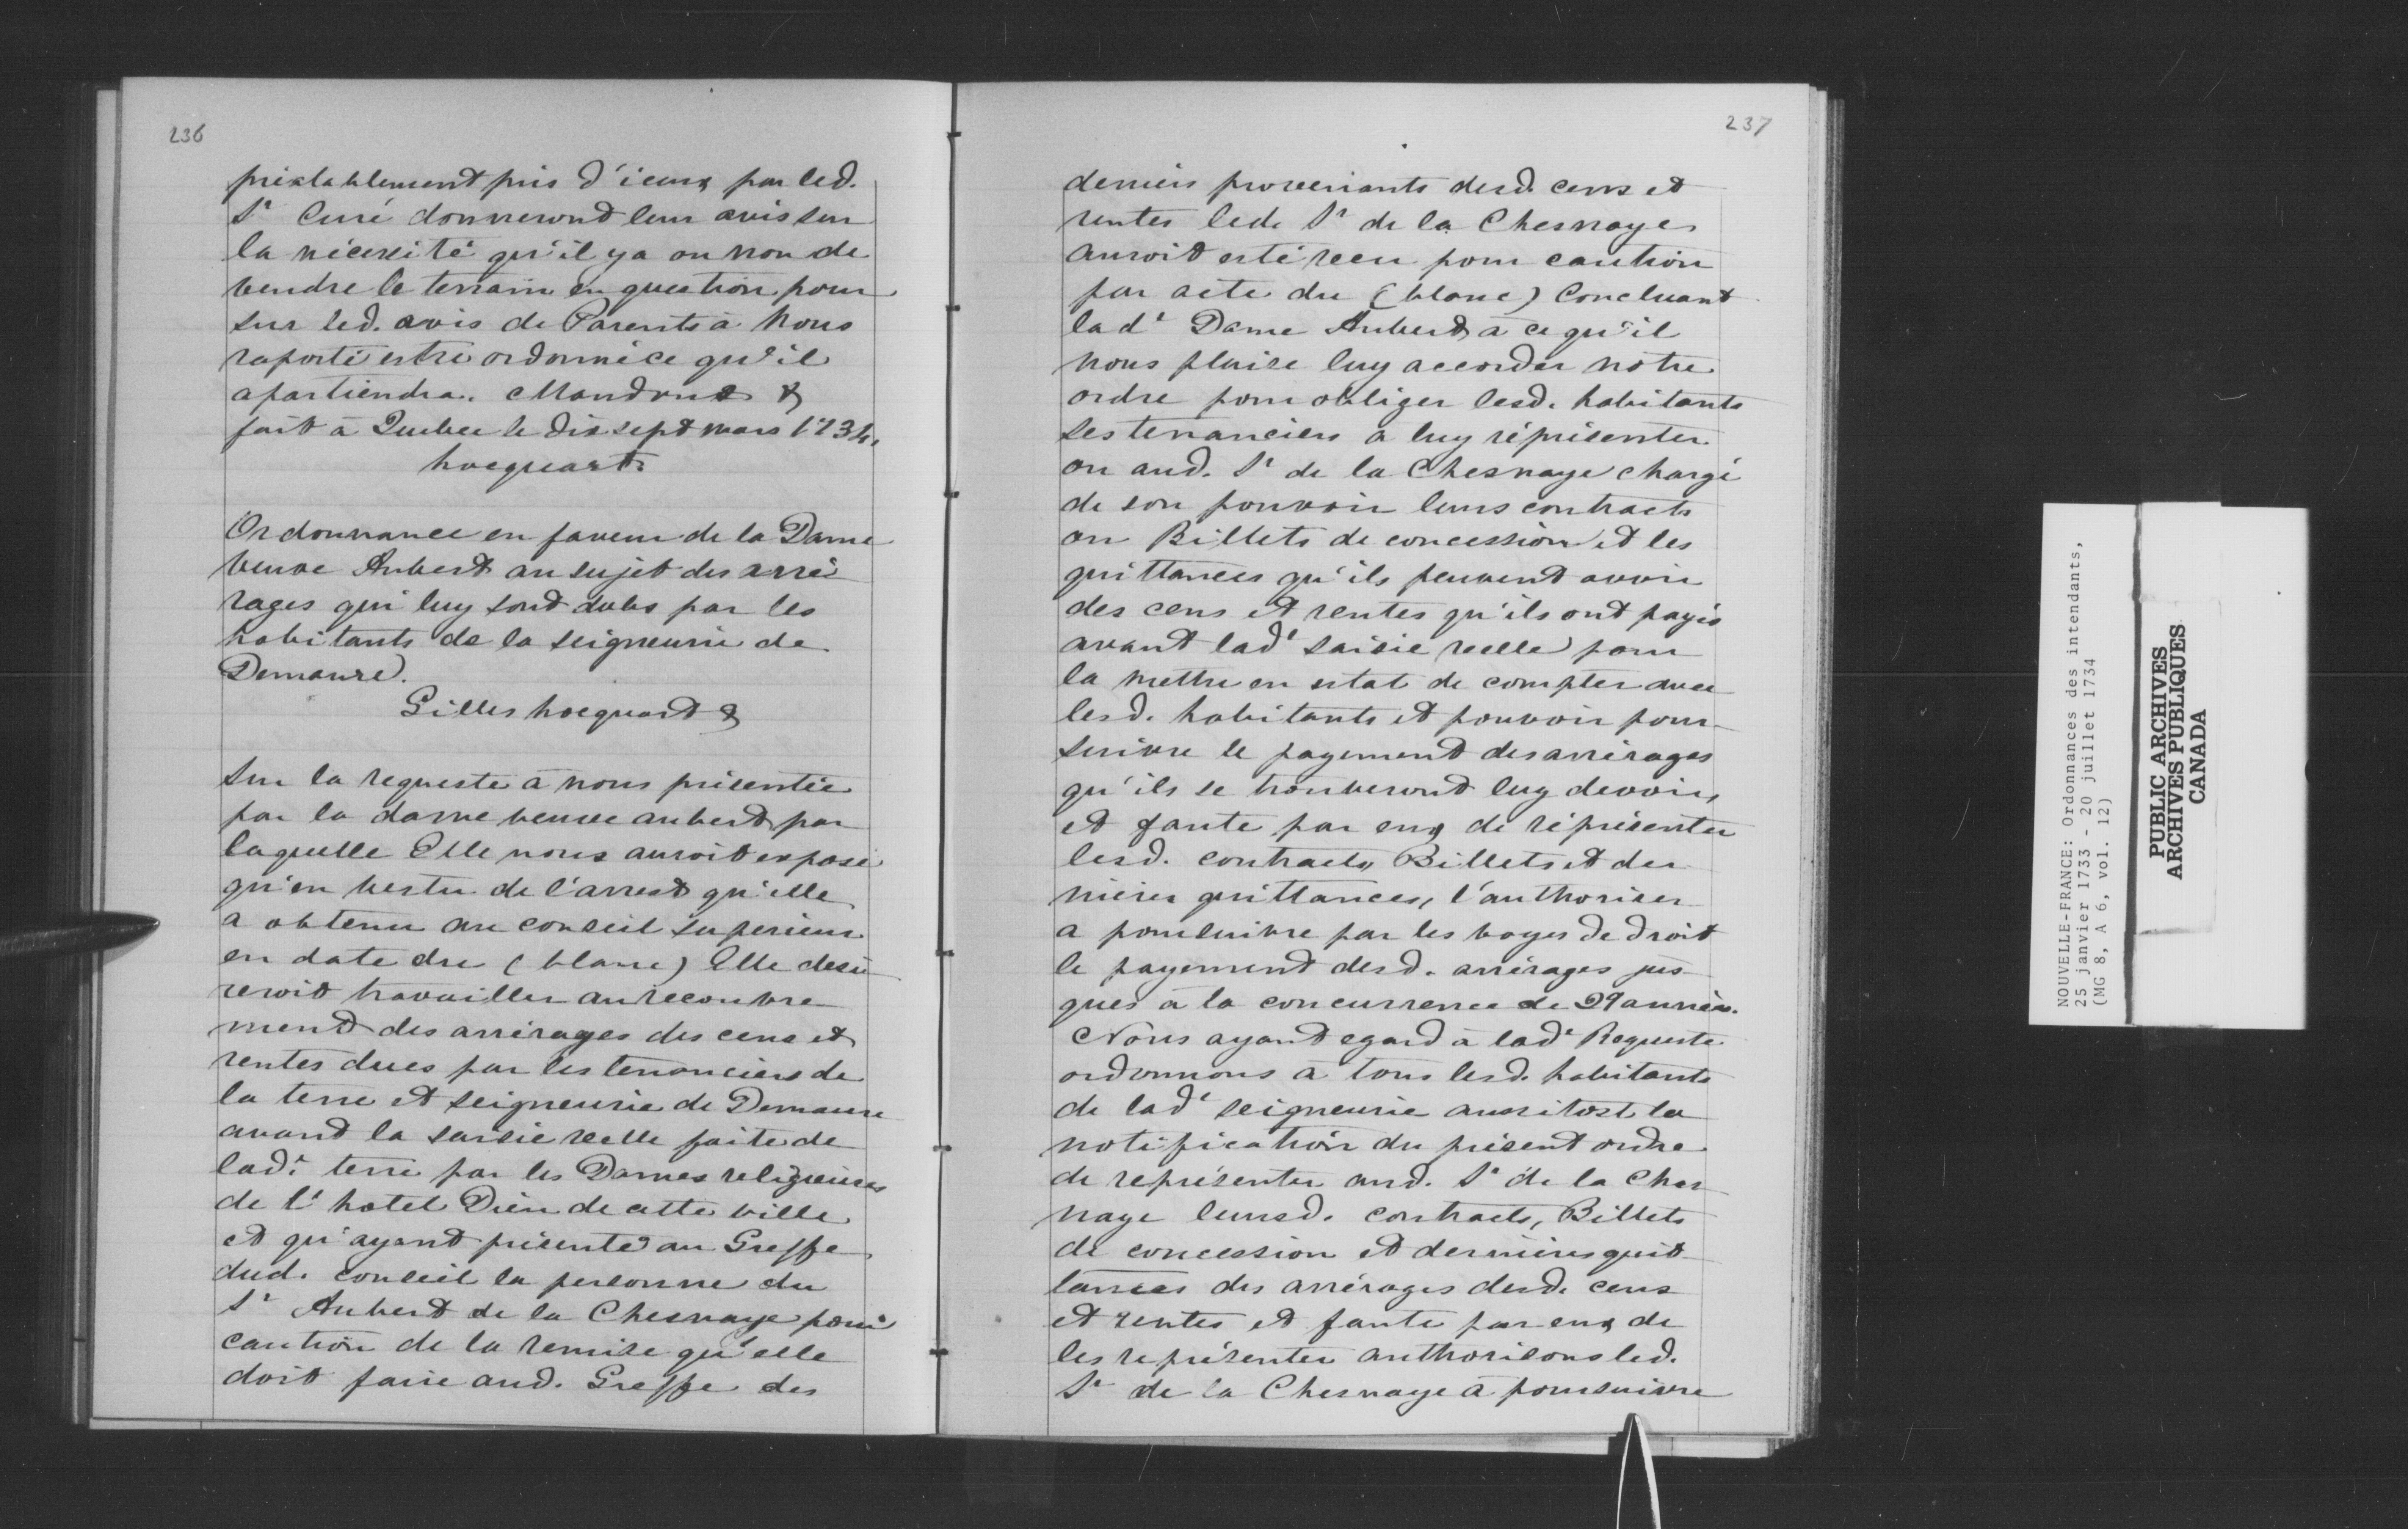 236
préalablement pris d'iceux par led.
Sr Curé donneront leur avis sur
la nécessité qu'il y a ou non de
vendre le terrain en question pour
sur led. avis de Parents à Nous
raporté estre ordonné ce qu'il
apartiendra. Mandons &
fait à Quebec le dix sept mars 1734.
hocquart
Ordonnance en faveur de la Dame
veuve Aubert au sujet des arré
rages qui luy sont dubs par les
habitants de la seigneurie de
Demaure.
Gilles hocquart &
Sur la requeste à nous présentée
par la dame veuve aubert par
laquelle Elle nous auroit exposé
qu'en vertu de l'arrest qu'elle
a obtenu au conseil superieur
en date du (blanc) Elle desi
reroit travailler au recouvre
ment des arrérages des cens et
rentes dues par les tenanciers de
la terre et seigneurie de Demaure
avant la saisie reelle faite de
lade terre par les Dames religieuses
de l'hotel Dieu de cette ville
et qu'ayant présenté au Greffe
dud. conseil la personne du
Sr Aubert de la Chesnaye pour
caution de la remise qu'elle
doit faire aud. Greffe des
237
deniers provenants desd. cens et
rentes led. Sr de la Chesnaye
auroit esté receu pour caution
par acte du (blanc) Concluant
lade Dame Aubert à ce qu'il
nous plaise luy accorder notre
ordre pour obliger lesd. habitants
ses tenanciers a luy répresenter
ou aud. Sr de la Chesnaye chargé
de son pouvoir leurs contracts
ou Billets de concession et les
quittances qu'ils peuvent avoir
des cens et rentes qu'ils ont payés
avant lade saisie reelle pour
la mettre en estat de compter avec
lesd. habitants et pouvoir pour
suivre le payement des arrérages
qu'ils se trouveront luy devoir,
et faute par eux de réprésenter
lesd. contracts, Billets et der
nieres quittances, l'authoriser
a poursuivre par les voyes de droit
le payement desd. arrérages jus
ques à la concurrence de 29 années.
Nous ayant egard à lade Requeste
ordonnons à tous lesd. habitants
de lade seigneurie aussitost la
notification du présent ordre
de représenter aud. Sr de la Ches
naye leursd. contracts, Billets
de concession et dernieres quit
tances des arrérages desd. cens
et rentes et faute par eux de
les représenter authorisons led.
Sr de la Chesnaye à poursuivre
NOUVELLE-FRANCE: Ordonnances des intendants,
25 janvier 1733 - 20 juillet 1734
(MG 8, A 6, vol. 12)
PUBLIC ARCHIVES
ARCHIVES PUBLIQUES
CANADA